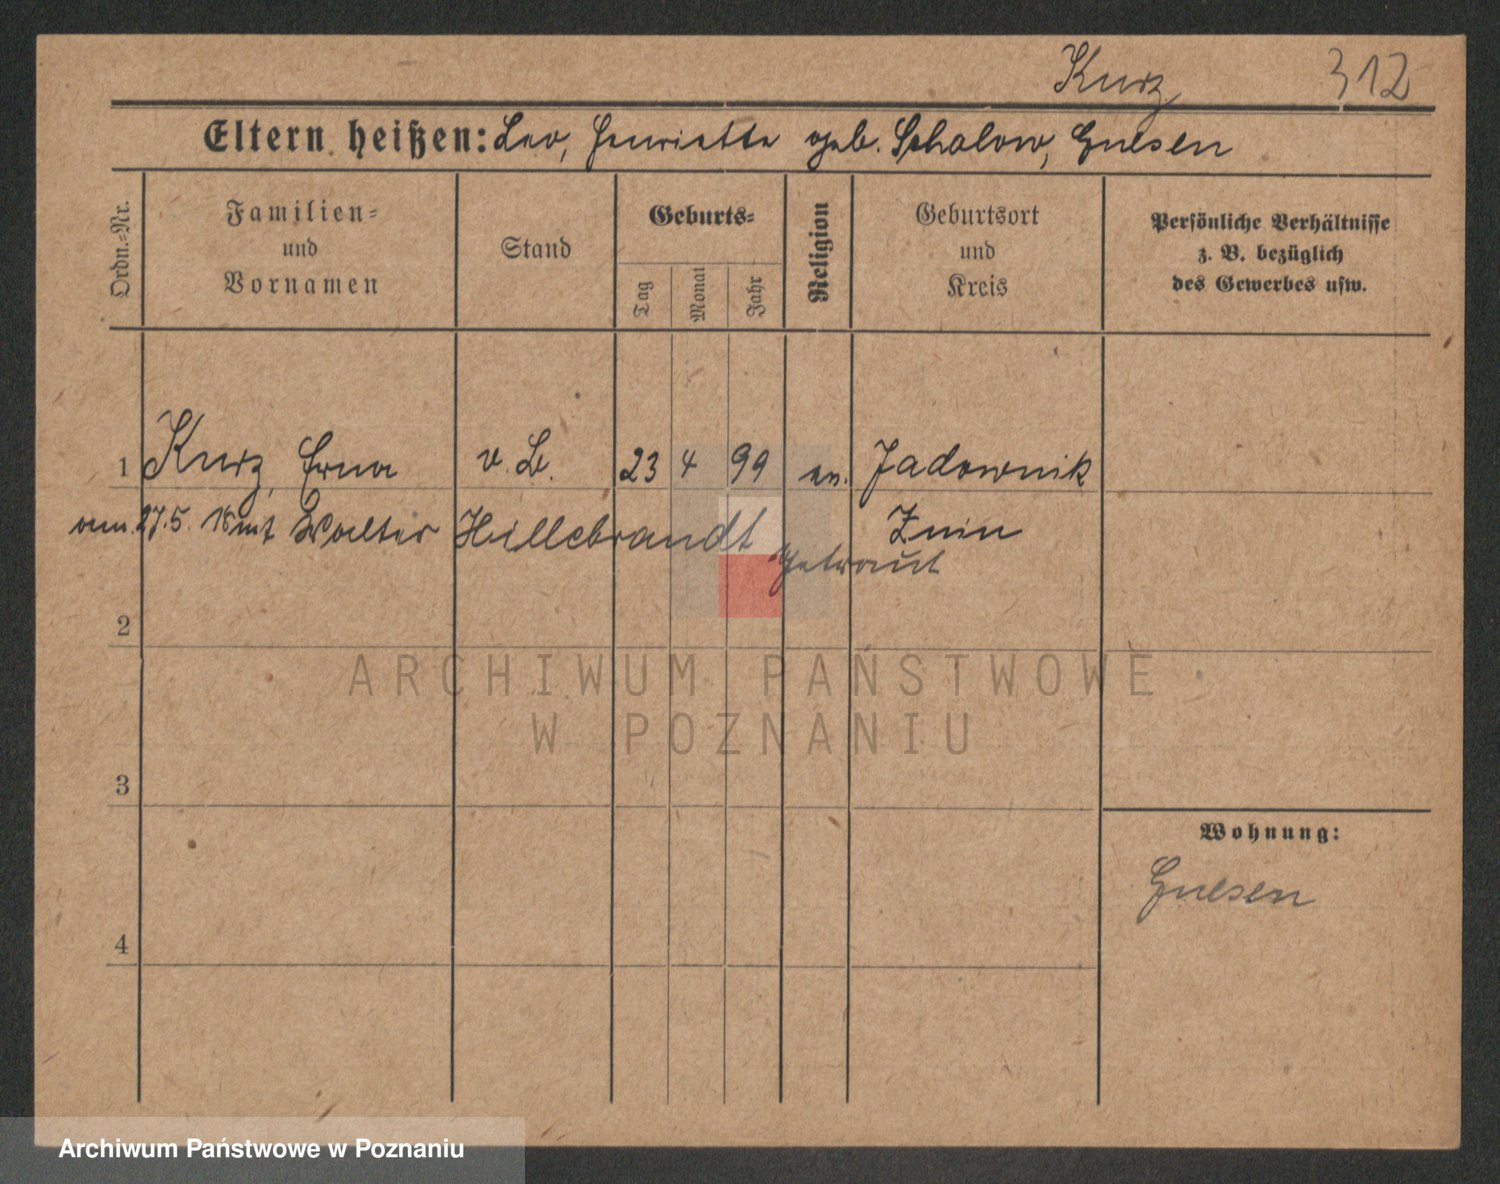 Kurz 312
Eltern heißen: Leo, Henriette geb. Schalow, Gnesen
Ordn.-Nr.
Familien-
und
Vornamen
Stand
Geburts-
Tag
Monat
Jahr
Religion
Geburtsort
und
Kreis
Persönliche Verhältnisse
z. B. bezüglich
des Gewerbes usw.
1 Kurz, Erna v. B. 23 4 99 ev. Jadownik
27.5. 18 mit Walter Hillebrandt Znin
getraut
2
ARCHIWUM PAŃSTWOWE
W POZNANIU
3
Wohnung:
Gnesen
4
Archiwum Państwowe w Poznaniu